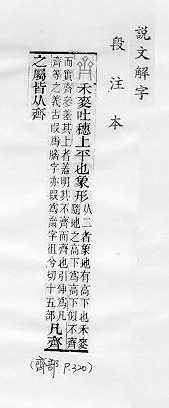 說文解字
段注本
禾麥吐穗上平也象形
从二者象地有高下也禾麥
隨地之高下為高下似不齊
而實齊參差其上者蓋明其不齊而齊也引伸為凡
齊等之義古叚為臍字亦叚為字徂兮切十五部
凡齊
之屬皆从齊
(齊部 P.320)